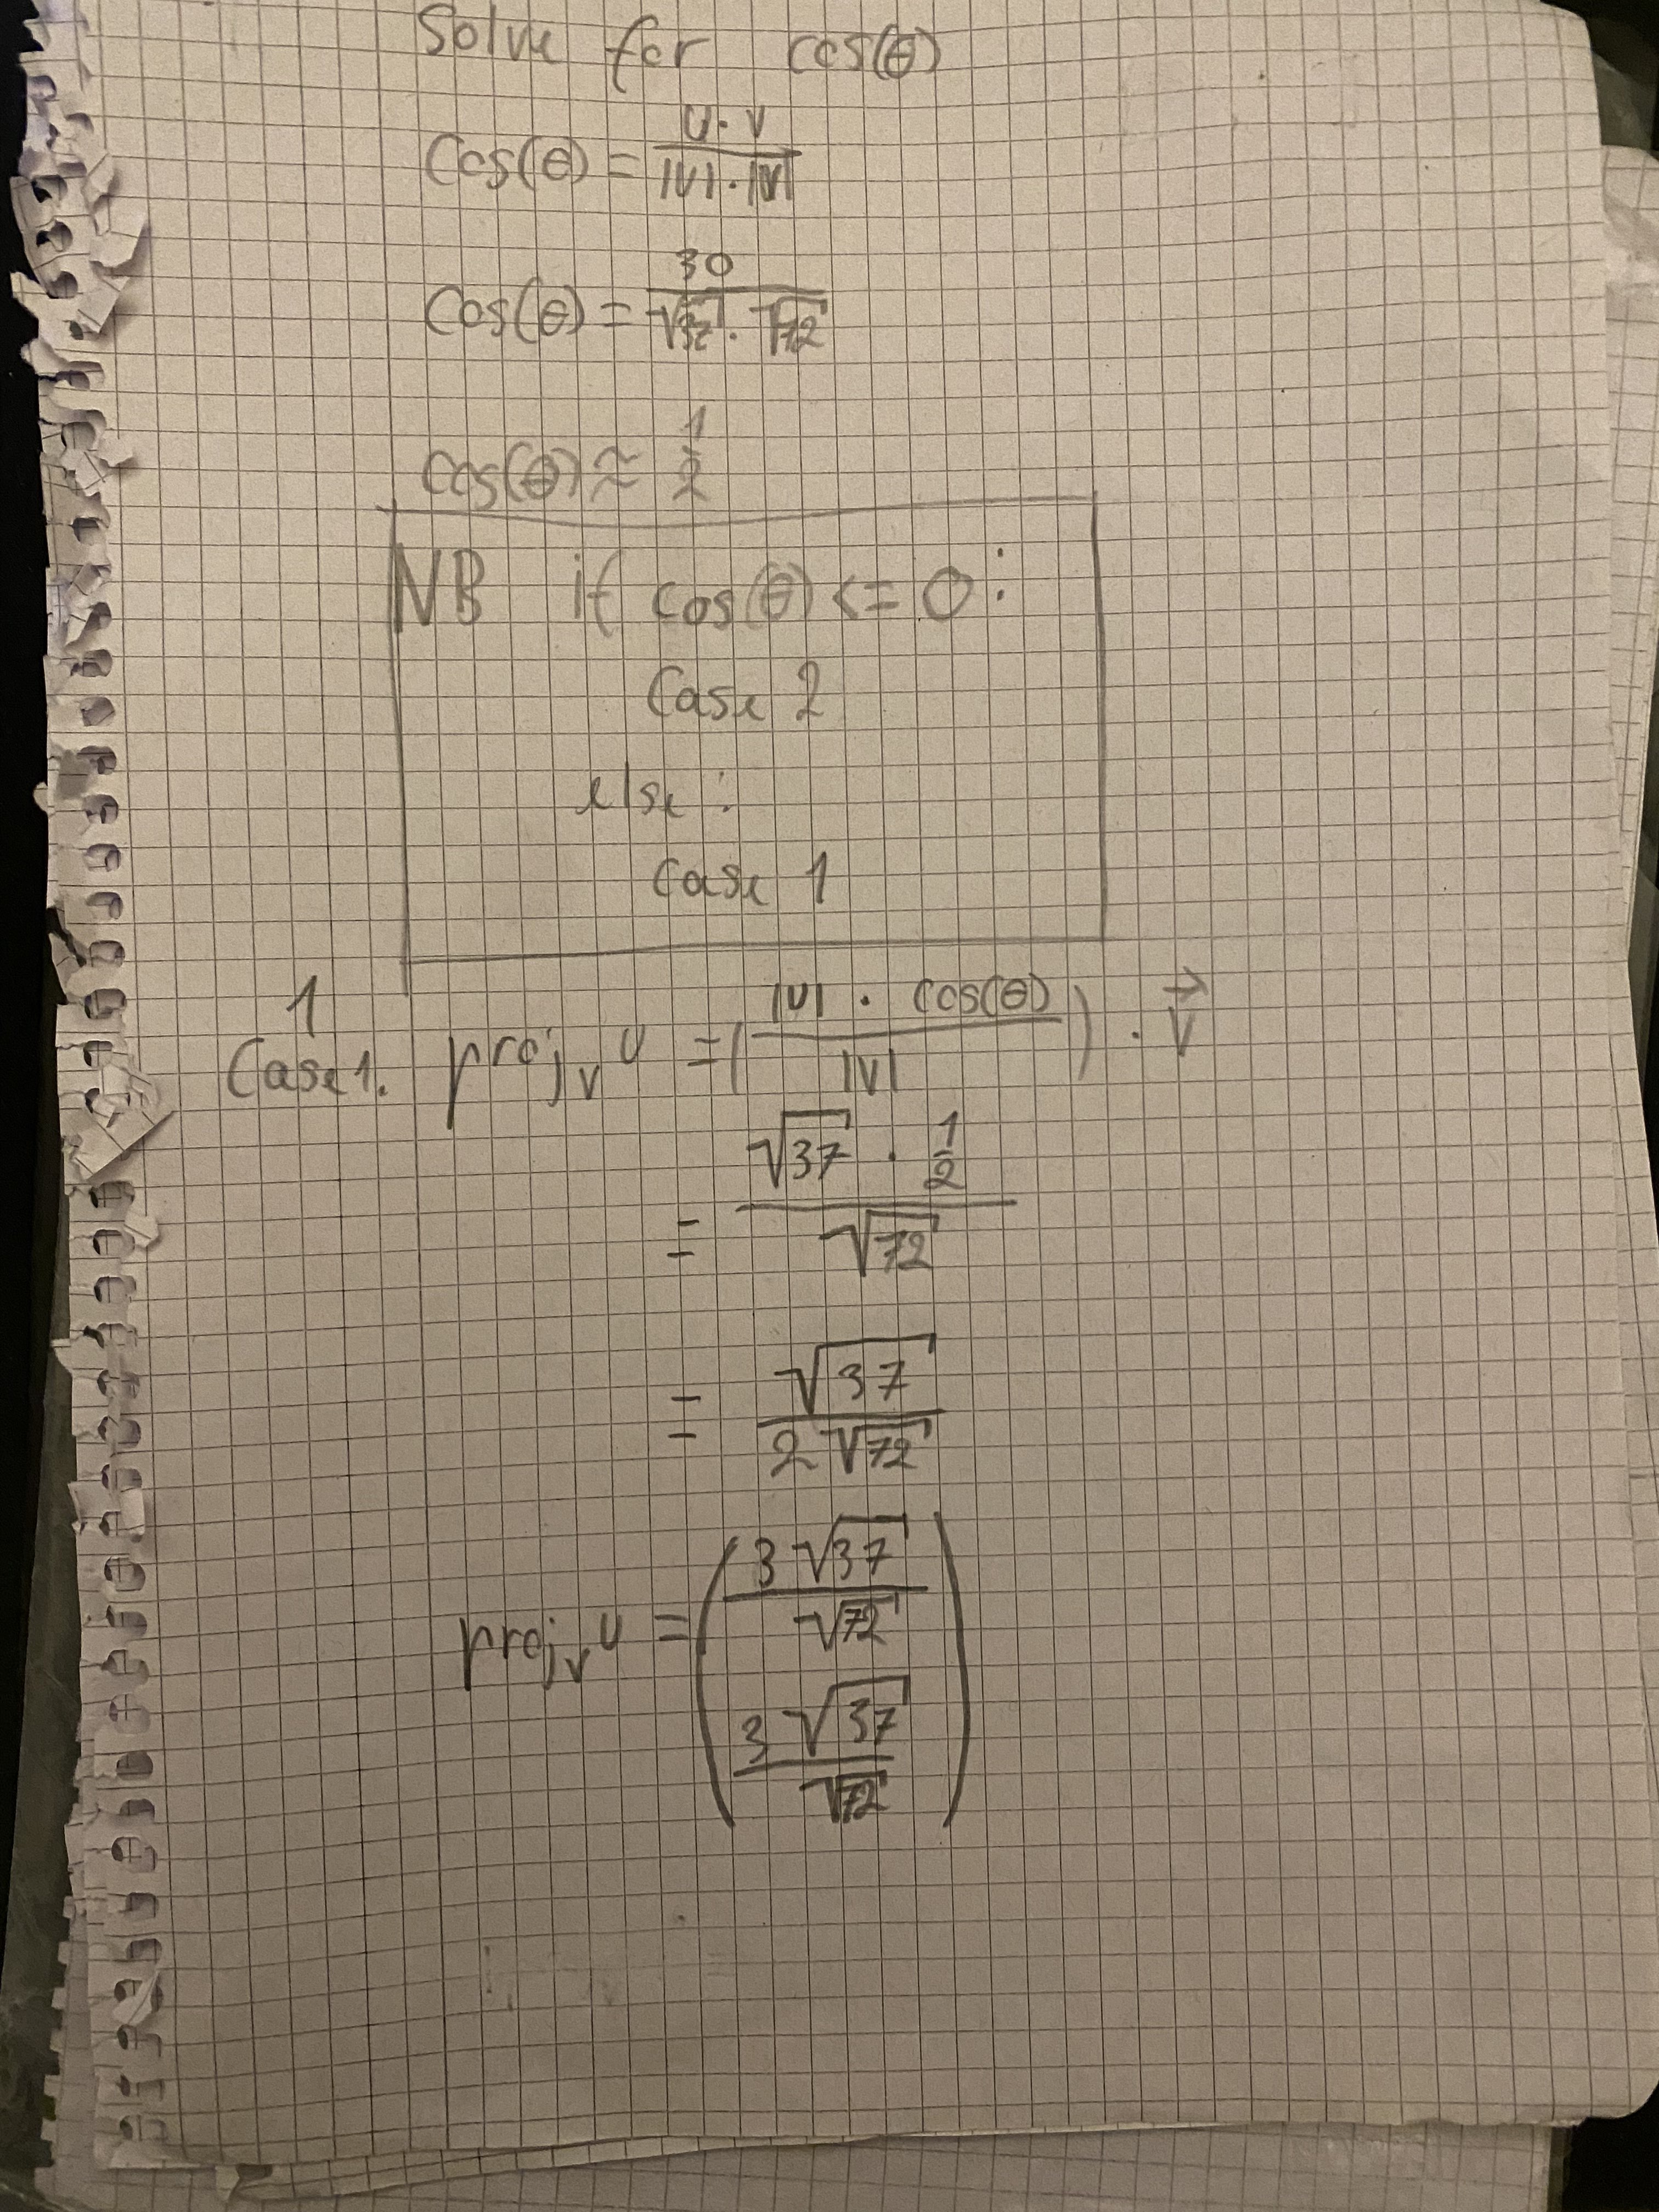 Solve for cos(θ)
cos(θ) = U · V / |U| · |V|
cos(θ) = 30 / √37 · √72
cos(θ) ≈ 1/2
NB if cos(θ) <= 0 :
Case 2
else :
Case 1
1
Case 1. proj_v U = (|U| · cos(θ) / |V|) · V⃗
= √37 · 1/2 / √72
= √37 / 2√72
proj_v U = (3√37 / √72
3√37 / √72)